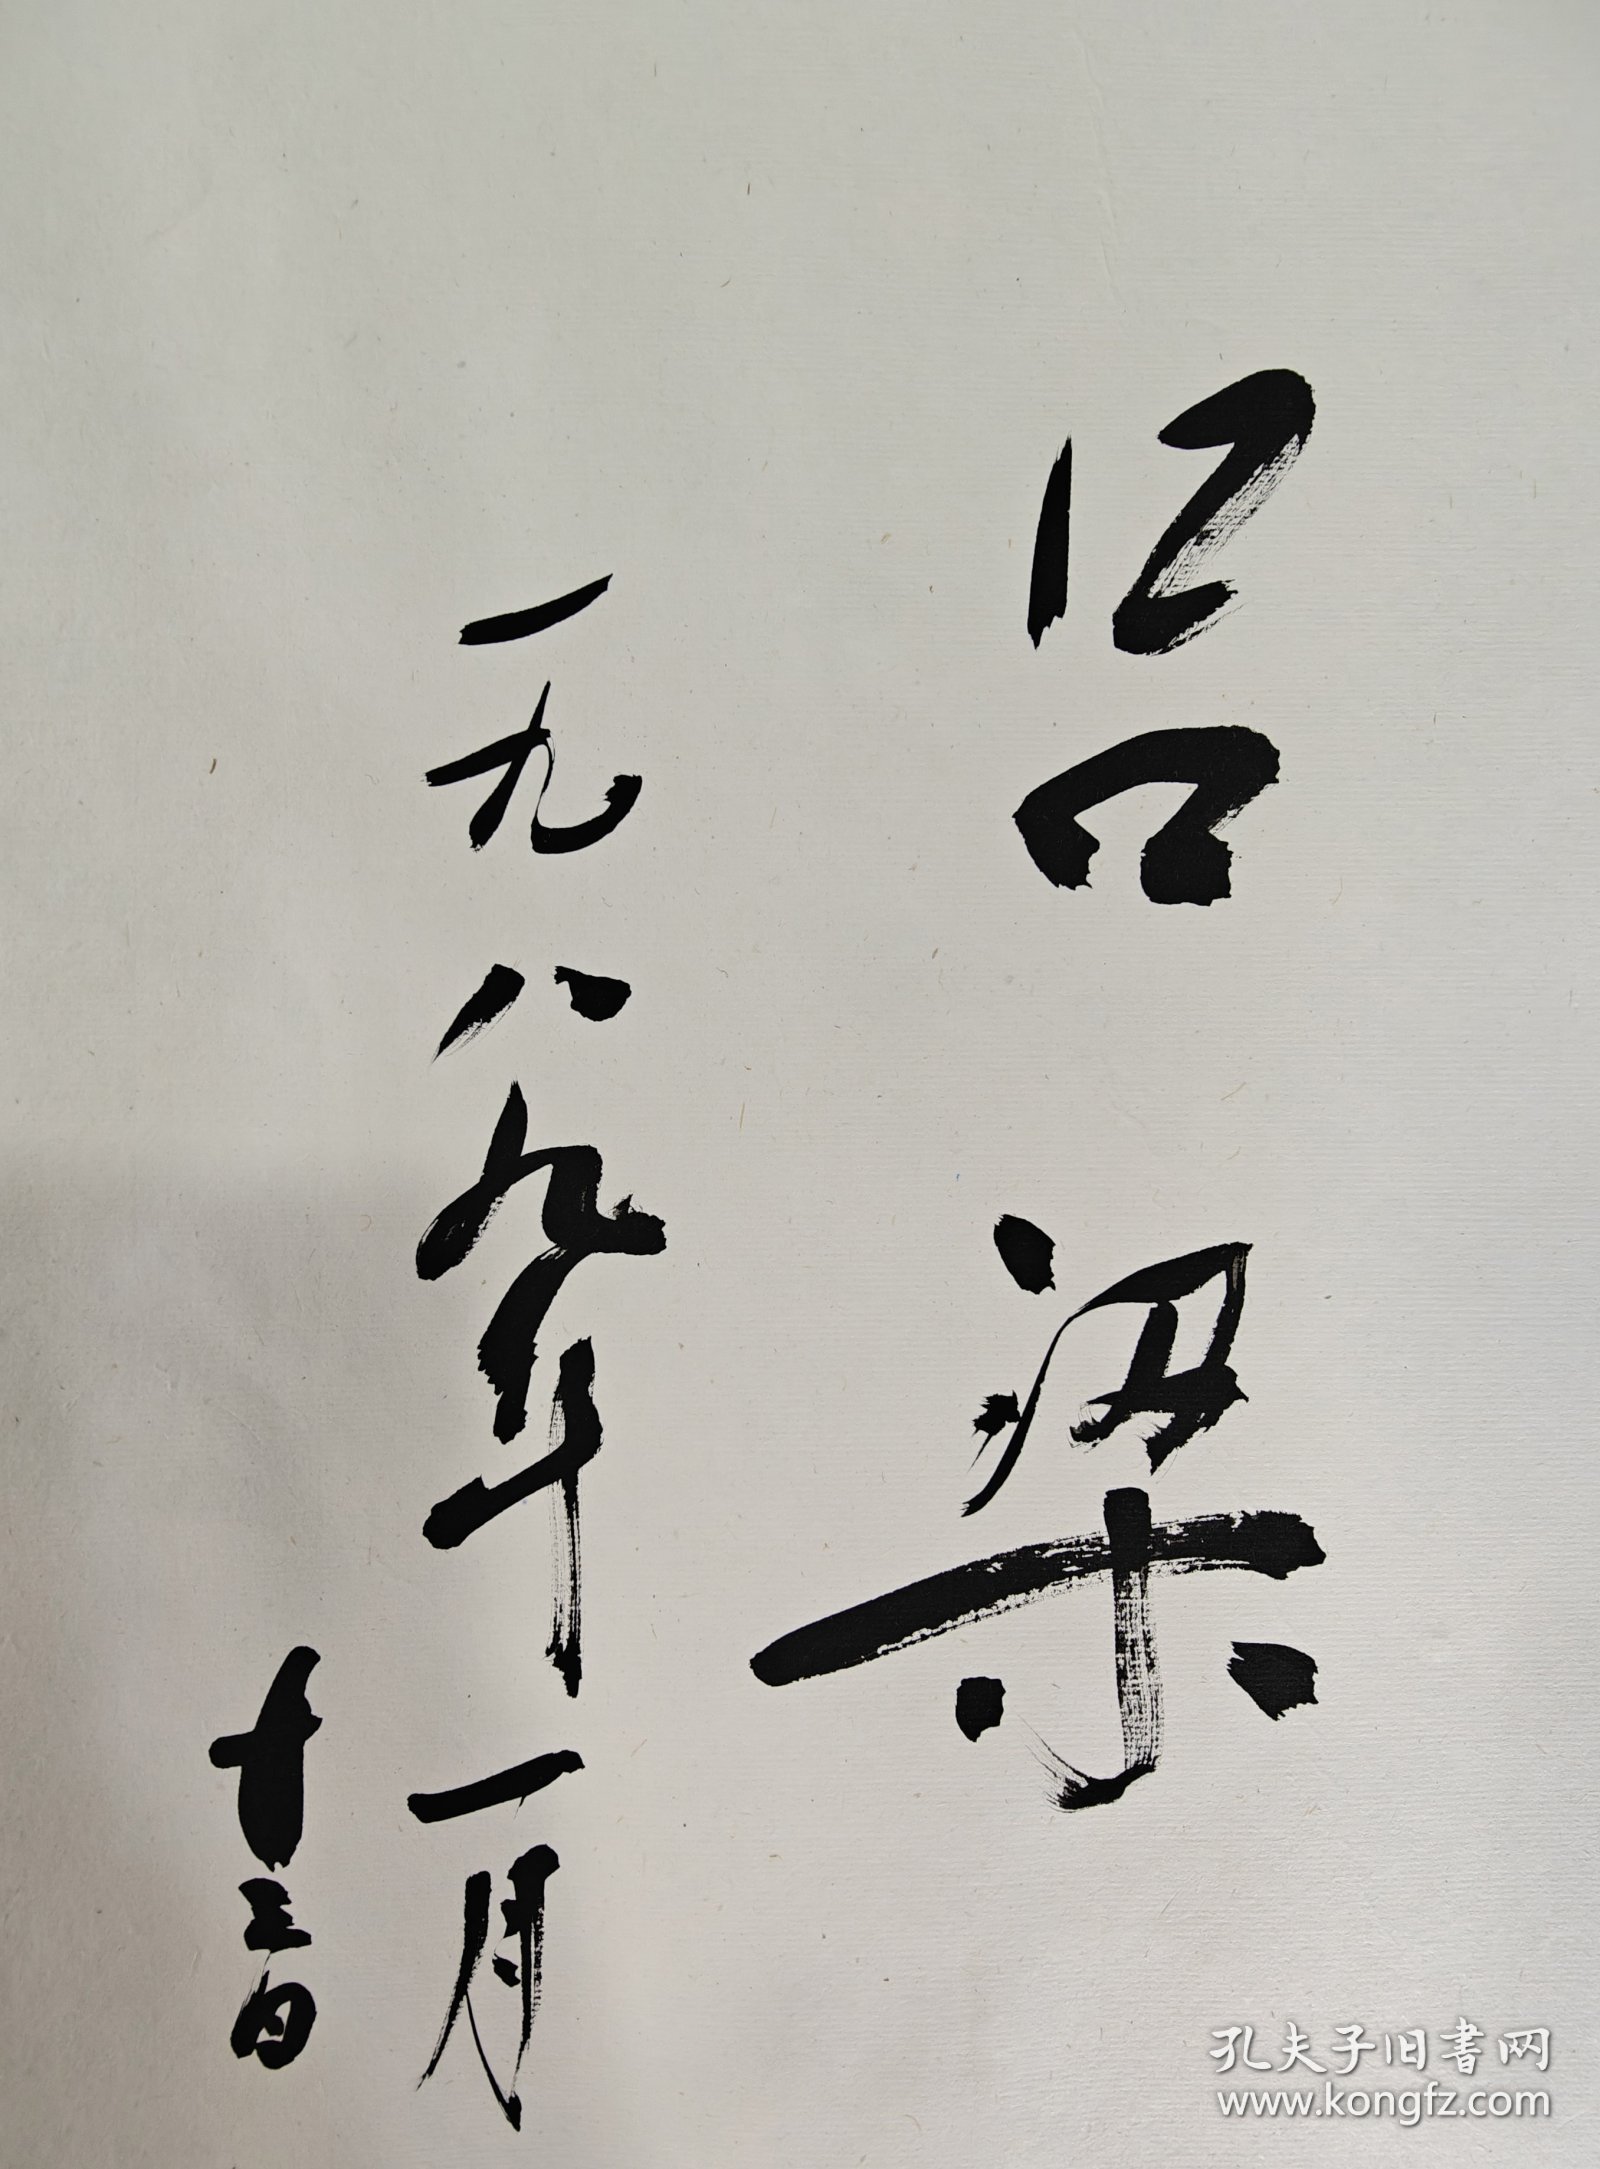 吕梁
一九八九年一月
十三日
孔夫子旧書网
www.kongfz.com